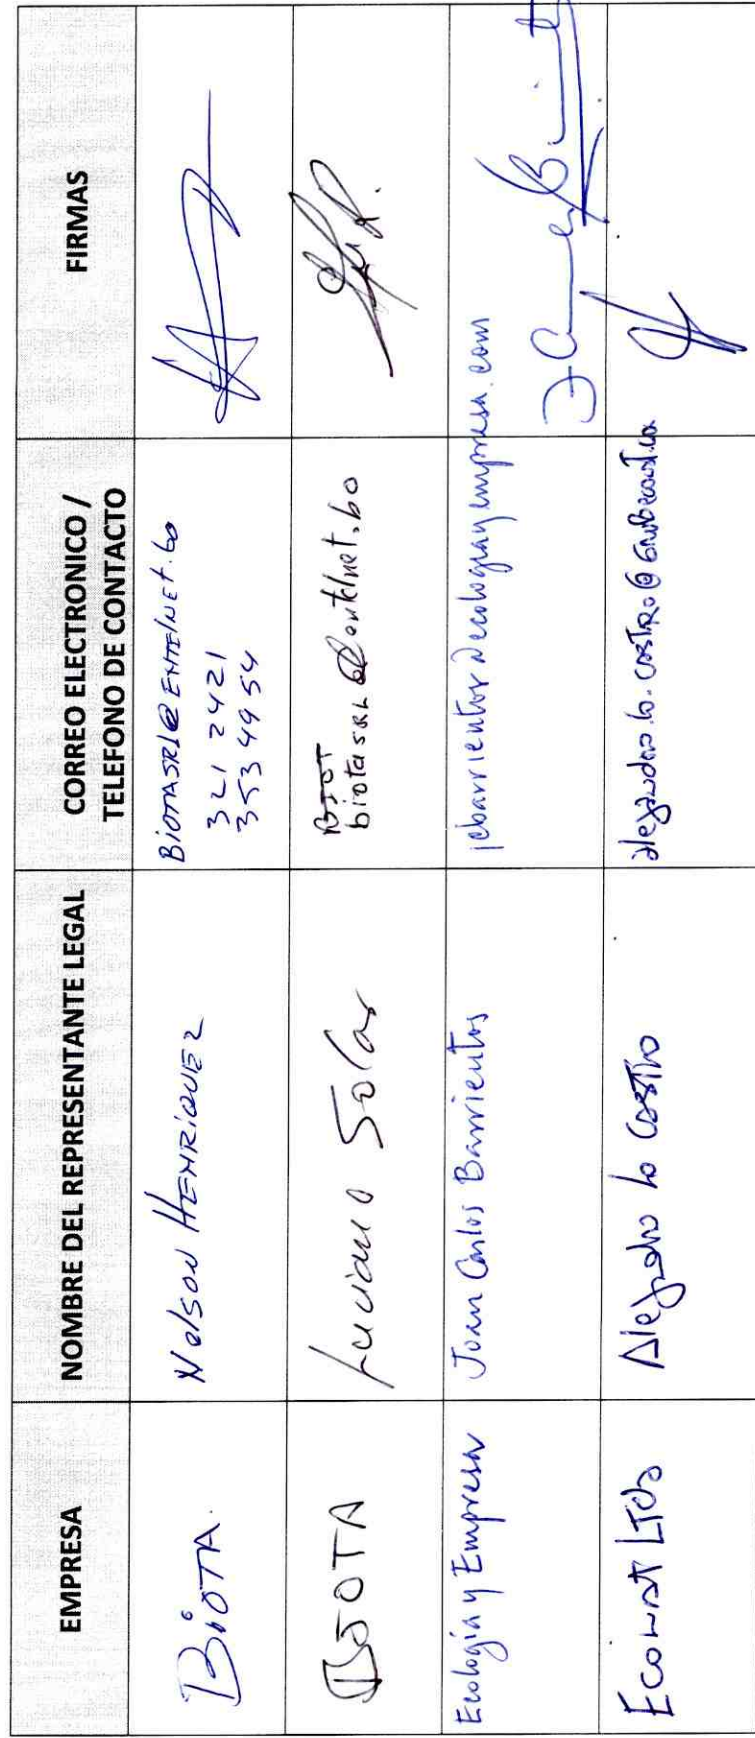 EMPRESA NOMBRE DEL REPRESENTANTE LEGAL CORREO ELECTRONICO / TELEFONO DE CONTACTO FIRMAS
BiOTA. Nelson HENRiQUEZ BiOTASRL@ENTELNET.bo
321 2421
353 4954
BIOTA Luciano Solar BIOT
biotaSRL@entelnet.bo
Ecología y Empresa Juan Carlos Barrientos jcbarrientos@ecologiayempresa.com
Alejandro Lo Castro